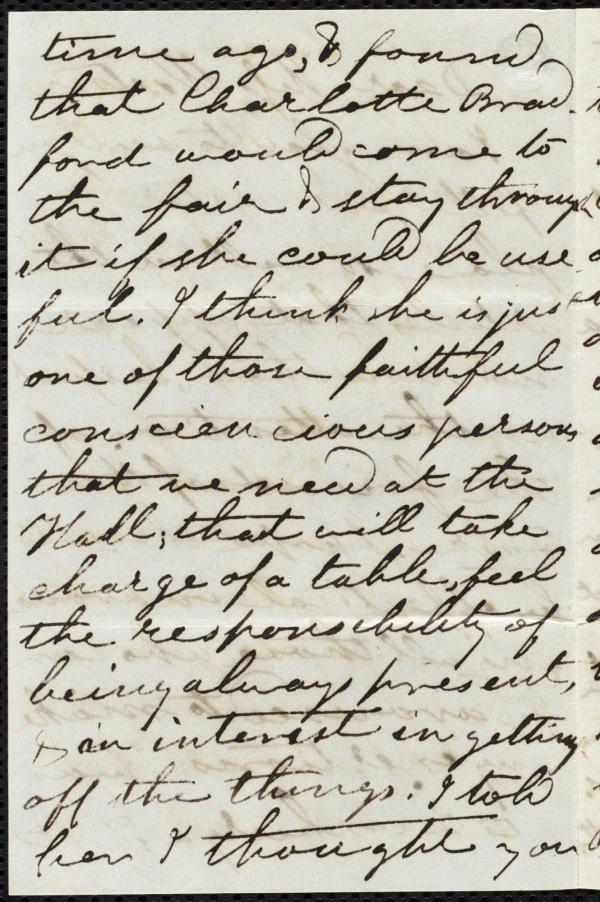 time ago, & found
that Charlotte Brad-
ford would come to
the fair & stay through
it if she could be use
ful. I think she is just
one of those faithful
conscien cious persons
that we need at the
Hall; that will take
charge of a table, feel
the responsibility of
being always present,
& an interest in getting
off the things. I told
her I thought you